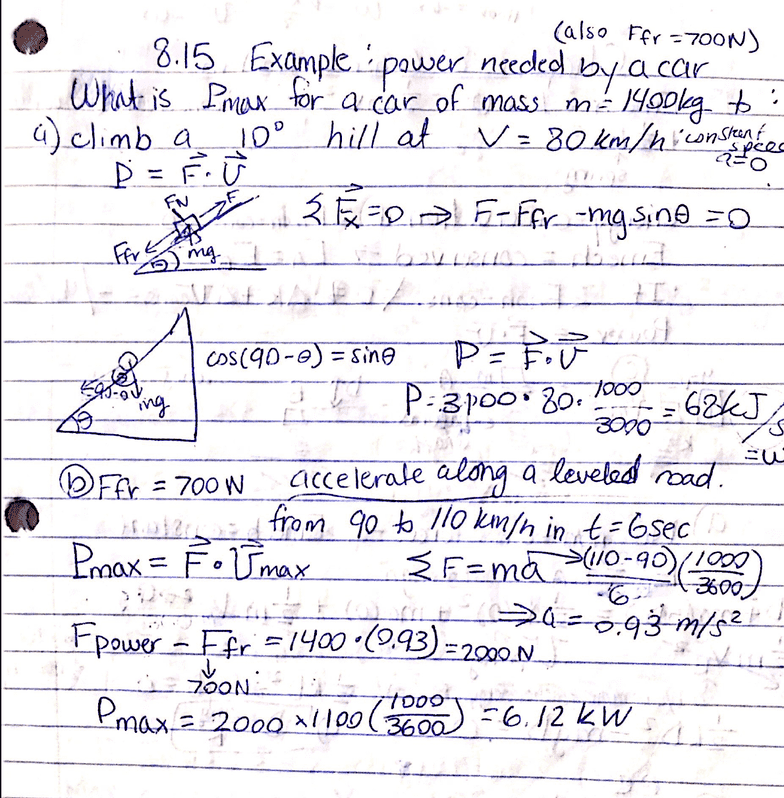 (also Ffr = 700N)
8.15 Example : power needed by a car
What is Pmax for a car of mass m = 1400kg to :
a) climb a 10° hill at V = 80 km/h : constant speed
a=0
P = F⃗ · U⃗
FN F
Ffr θ mg
Σ F⃗x = 0 ⇒ F - Ffr - mg sinθ = 0
cos(90-θ) = sinθ P = F⃗ · U⃗
90-θ mg
θ
P = 3100 · 80 · 1000/3000 = 68kJ/s
= W
ⓑ Ffr = 700 N accelerate along a leveled road.
from 90 to 110 km/h in t = 6sec
Pmax = F⃗ · U⃗max Σ F = ma → (110-90)/6 (1000/3600)
⇒ a = 0.93 m/s²
Fpower - Ffr = 1400 · (0.93) = 2000 N
↓
700N
Pmax = 2000 × 1100 (1000/3600) = 6.12 kW